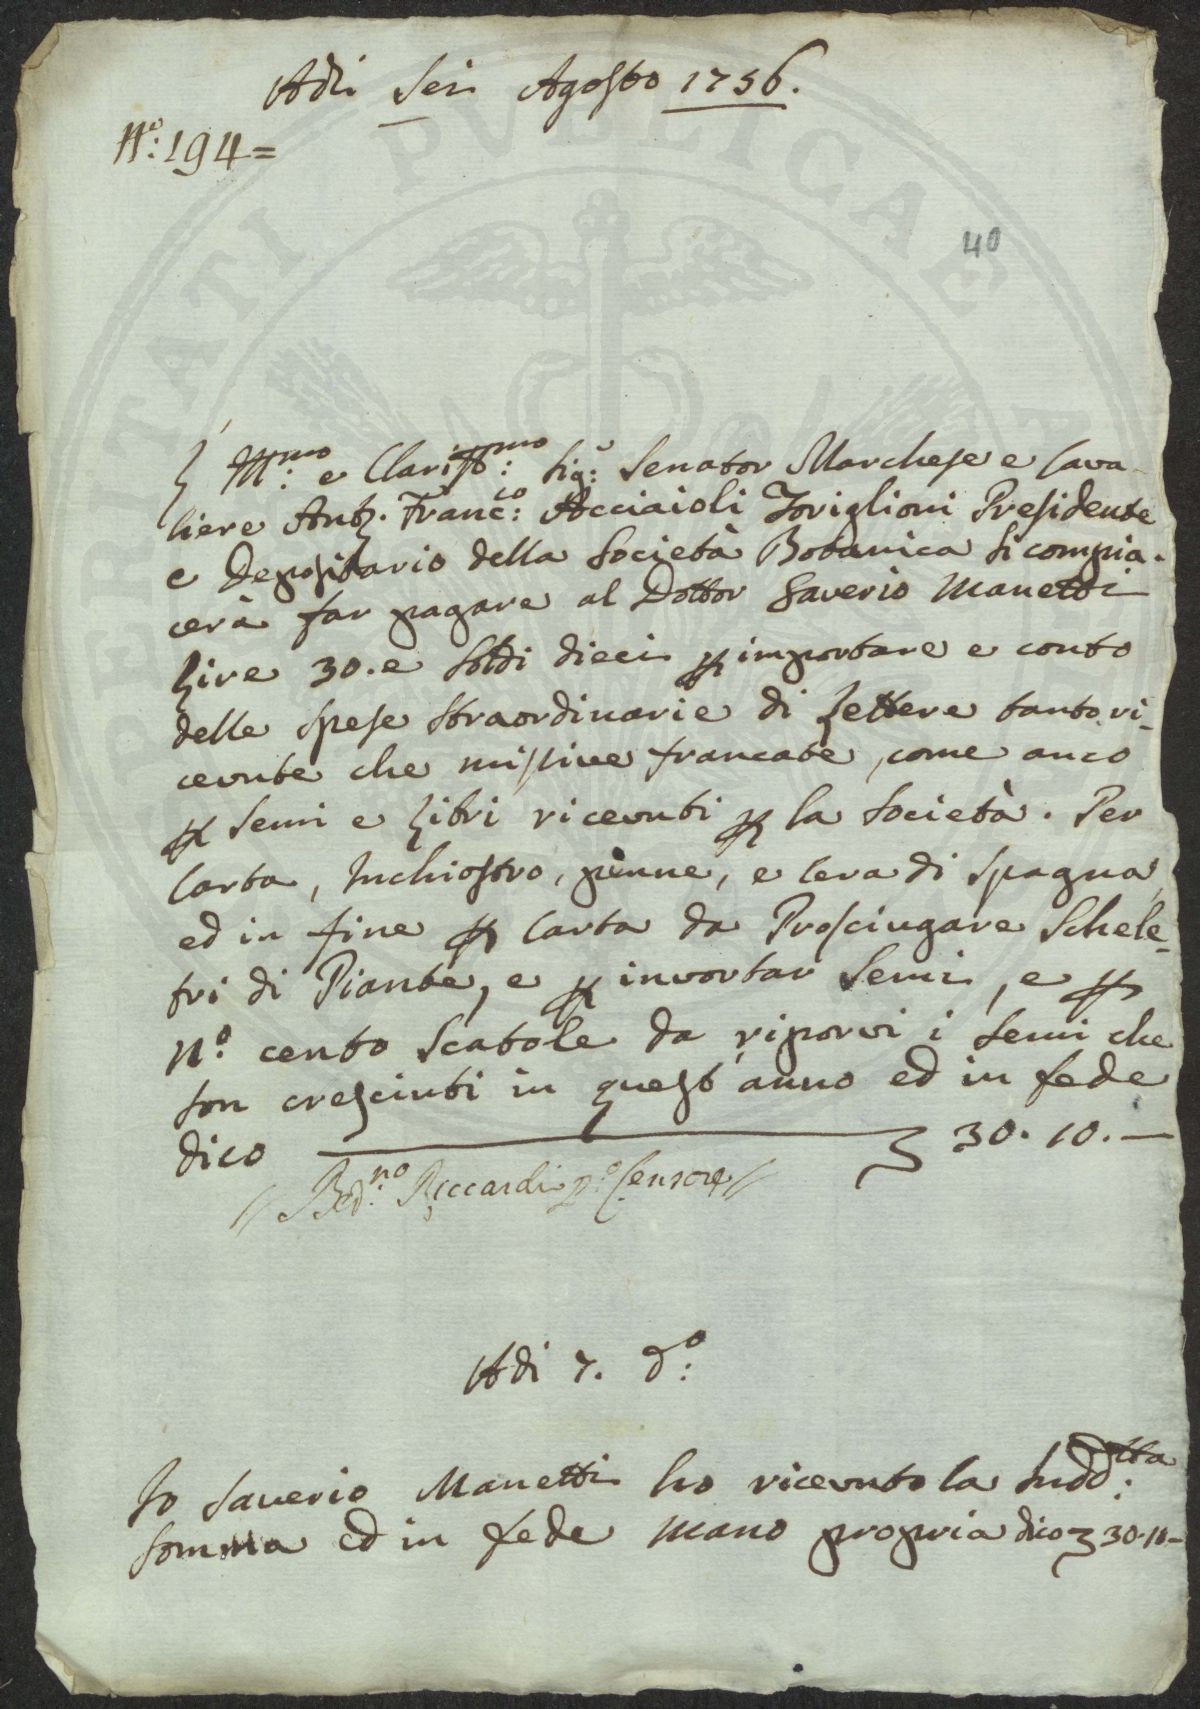 Adi Sei Agosto 1756.
N.º: 194=
40
L' Ill.mo: e Clariss.mo: Sig.e: Senator Marchese e Cava-
liere Ant.º Franc.co: Acciaioli Toriglioni Presidente
e Depositario della Società Botanica si compia-
cerà far pagare al Dottor Saverio Manetti
Lire 30. e Soldi dieci p importare e conto
delle spese straordinarie di Lettere tanto ri-
ceute che missive francate, come anco
p semi e Libri riceuti p la Società. Per
Carta, Inchiostro, penne, e Cera di Spagna,
ed in fine p Carta da Prosciugare Schele-
tri di Piante, e p involtar Semi, e p
N.º cento Scatole da riporvi i Semi che
son cresciuti in quest'anno ed in fede
dico 30. 10. —
// Bed.no: Riccardi p.º Censore //
Adi 7. dº:
Io Saverio Manetti ho riceuto la sudd.tta:
Somma ed in fede mano propria dico 30.10-
PVBLICAE